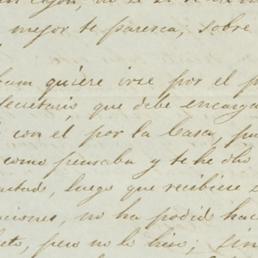 mejor te paresca, sobre
quiere irse por el
Secretario, que debe encarga
con el por la Casa, pu
como pensaba y te he dho
luego que recibiere
ciones, no ha podido hac
pero no lo hizo;